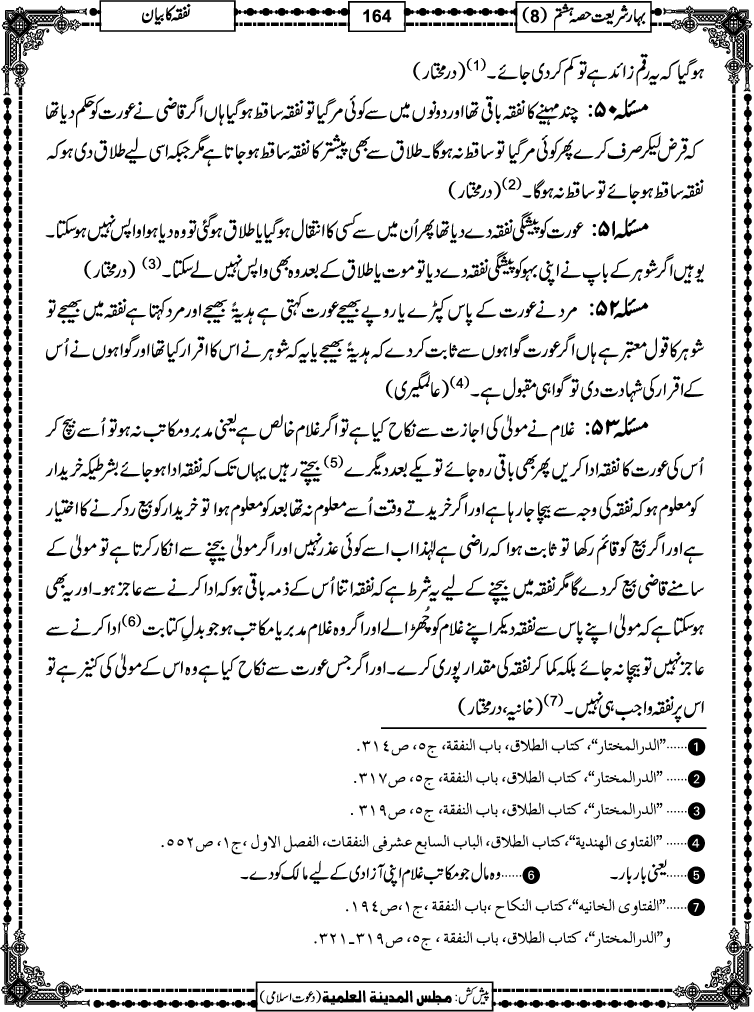 بہار شریعت حصہ ہشتم (8)
164
نفقہ کا بیان
ہوگیا کہ یہ رقم زائد ہے تو کم کر دی جائے۔(1) (درمختار)
مسئلہ ۵۰: چند مہینے کا نفقہ باقی تھا اور دونوں میں سے کوئی مر گیا تو نفقہ ساقط ہوگیا ہاں اگر قاضی نے عورت کو حکم دیا تھا
کہ قرض لیکر صرف کرے پھر کوئی مر گیا تو ساقط نہ ہوگا۔ طلاق سے بھی پیشتر کا نفقہ ساقط ہو جاتا ہے مگر جبکہ اسی لیے طلاق دی ہو کہ
نفقہ ساقط ہو جائے تو ساقط نہ ہوگا۔(2) (درمختار)
مسئلہ ۵۱: عورت کو پیشگی نفقہ دے دیا تھا پھر اُن میں سے کسی کا انتقال ہوگیا یا طلاق ہوگئی تو وہ دیا ہوا واپس نہیں ہوسکتا۔
یوہیں اگر شوہر کے باپ نے اپنی بہو کو پیشگی نفقہ دے دیا تو موت یا طلاق کے بعد وہ بھی واپس نہیں لے سکتا۔(3) (درمختار)
مسئلہ ۵۲: مرد نے عورت کے پاس کپڑے یا روپے بھیجے عورت کہتی ہے ہدیۃً بھیجے اور مرد کہتا ہے نفقہ میں بھیجے تو
شوہر کا قول معتبر ہے ہاں اگر عورت گواہوں سے ثابت کر دے کہ ہدیۃً بھیجے یا یہ کہ شوہر نے اس کا اقرار کیا تھا اور گواہوں نے اُس
کے اقرار کی شہادت دی تو گواہی مقبول ہے۔(4) (عالمگیری)
مسئلہ ۵۳: غلام نے مولیٰ کی اجازت سے نکاح کیا ہے تو اگر غلام خالص ہے یعنی مدبر و مکاتب نہ ہو تو اُسے بیچ کر
اُس کی عورت کا نفقہ ادا کریں پھر بھی باقی رہ جائے تو یکے بعد دیگرے(5) بیچتے رہیں یہاں تک کہ نفقہ ادا ہو جائے بشرطیکہ خریدار
کو معلوم ہو کہ نفقہ کی وجہ سے بیچا جا رہا ہے اور اگر خریدتے وقت اُسے معلوم نہ تھا بعد کو معلوم ہوا تو خریدار کو بیع رد کرنے کا اختیار
ہے اور اگر بیع کو قائم رکھا تو ثابت ہوا کہ راضی ہے لہٰذا اب اسے کوئی عذر نہیں اور اگر مولیٰ بیچنے سے انکار کرتا ہے تو مولیٰ کے
سامنے قاضی بیع کر دے گا مگر نفقہ میں بیچنے کے لیے یہ شرط ہے کہ نفقہ اتنا اُس کے ذمہ باقی ہو کہ ادا کرنے سے عاجز ہو۔ اور یہ بھی
ہوسکتا ہے کہ مولیٰ اپنے پاس سے نفقہ دیکر اپنے غلام کو چُھڑا لے اور اگر وہ غلام مدبر یا مکاتب ہو جو بدلِ کتابت(6) ادا کرنے سے
عاجز نہیں تو بیچا نہ جائے بلکہ کما کر نفقہ کی مقدار پوری کرے۔ اور اگر جس عورت سے نکاح کیا ہے وہ اس کے مولیٰ کی کنیز ہے تو
اس پر نفقہ واجب ہی نہیں۔(7) (خانیہ، درمختار)
1 ......"الدرالمختار"، کتاب الطلاق، باب النفقة، ج٥، ص٣١٤.
2 ......"الدرالمختار"، کتاب الطلاق، باب النفقة، ج٥، ص٣١٧.
3 ......"الدرالمختار"، کتاب الطلاق، باب النفقة، ج٥، ص٣١٩.
4 ......"الفتاوی الهندية"،کتاب الطلاق، الباب السابع عشرفی النفقات، الفصل الاول ،ج١، ص٥٥٢.
5 ......یعنی بار بار۔ 6 ......وہ مال جو مکاتب غلام اپنی آزادی کے لیے مالک کو دے۔
7 ......"الفتاوی الخانیه"،کتاب النکاح ،باب النفقة ،ج١،ص١٩٤.
و"الدرالمختار"، کتاب الطلاق، باب النفقة ، ج٥، ص٣١٩۔٣٢١.
پیش کش: مجلس المدينة العلمية (دعوت اسلامی)